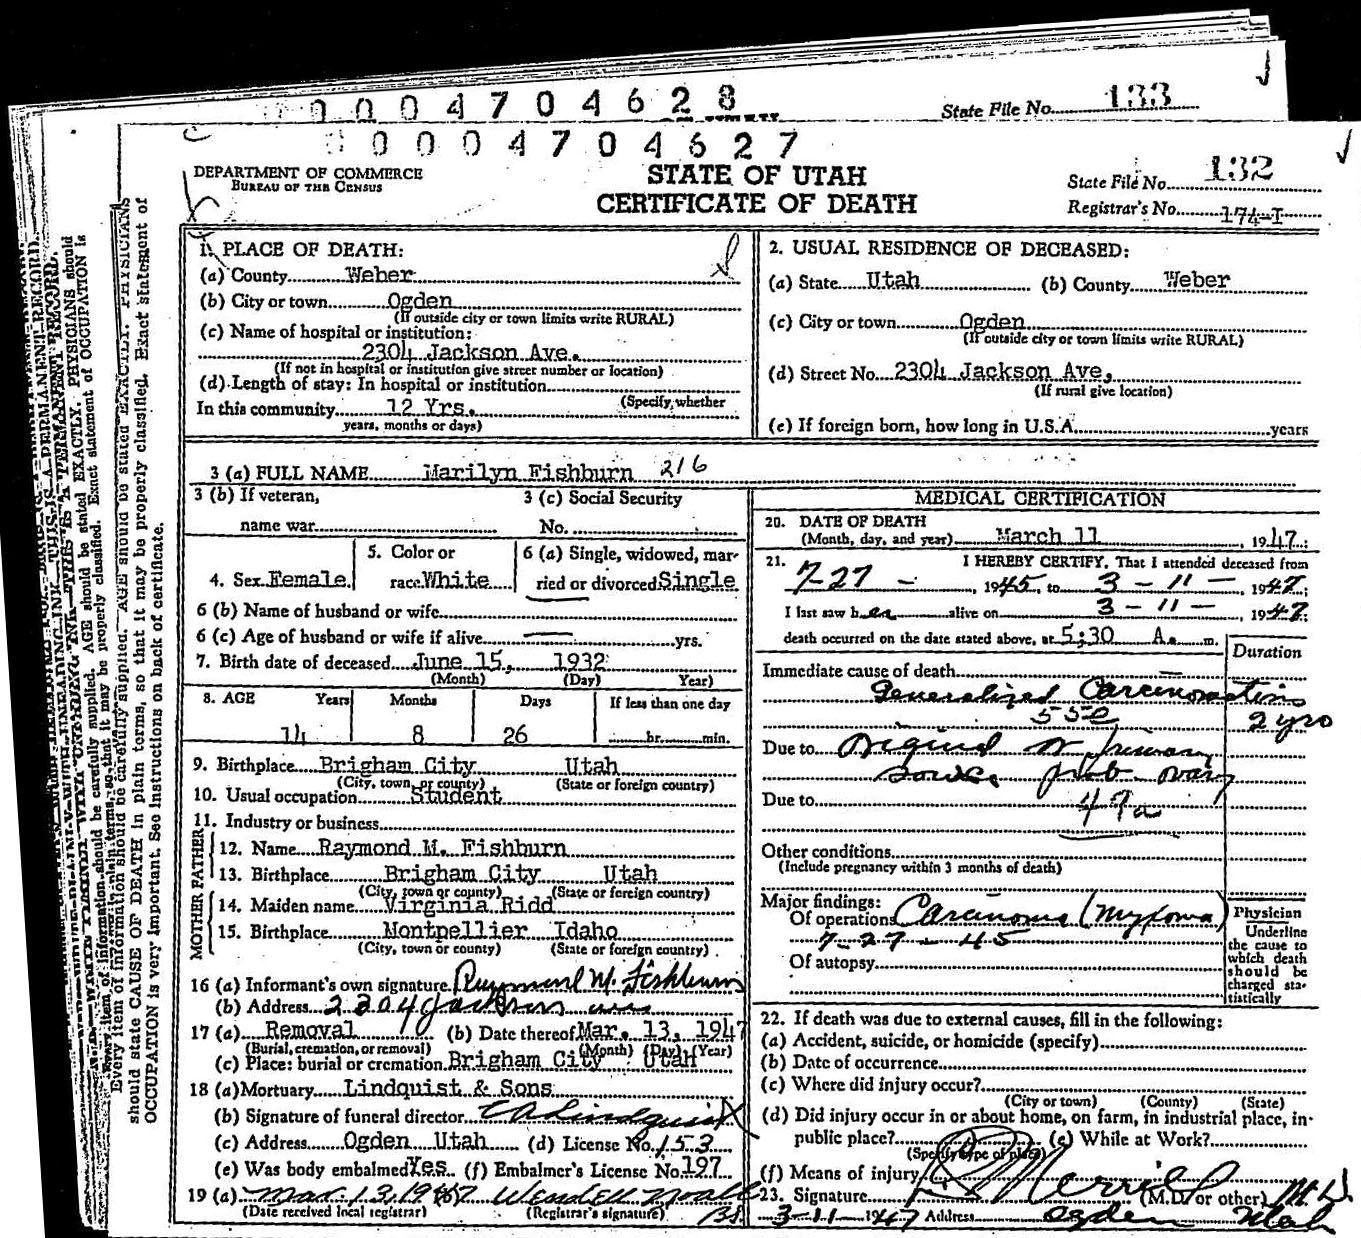 0 0 0 4 7 0 4 6 2 8
State File No. 133
0 0 0 4 7 0 4 6 2 7
DEPARTMENT OF COMMERCE
BUREAU OF THE CENSUS
STATE OF UTAH
CERTIFICATE OF DEATH
State File No. 132
Registrar's No. 174-I
Every item of information should be carefully supplied. AGE should be stated EXACTLY. PHYSICIANS
should state CAUSE OF DEATH in plain terms, so that it may be properly classified. Exact statement of
OCCUPATION is very important. See instructions on back of certificate.
1. PLACE OF DEATH:
(a) County Weber
(b) City or town Ogden
(If outside city or town limits write RURAL)
(c) Name of hospital or institution:
2304 Jackson Ave.
(If not in hospital or institution give street number or location)
(d) Length of stay: In hospital or institution
(Specify whether
In this community 12 Yrs.
years, months or days)
2. USUAL RESIDENCE OF DECEASED:
(a) State Utah (b) County Weber
(c) City or town Ogden
(If outside city or town limits write RURAL)
(d) Street No. 2304 Jackson Ave,
(If rural give location)
(e) If foreign born, how long in U.S.A. years
3 (a) FULL NAME Marilyn Fishburn 216
3 (b) If veteran,
name war
3 (c) Social Security
No.
4. Sex Female
5. Color or
race White
6 (a) Single, widowed, mar-
ried or divorced Single
6 (b) Name of husband or wife
6 (c) Age of husband or wife if alive yrs.
7. Birth date of deceased June 15, 1932
(Month) (Day) Year)
8. AGE Years Months Days If less than one day
14 8 26 hr. min.
9. Birthplace Brigham City Utah
(City, town, or county) (State or foreign country)
10. Usual occupation Student
11. Industry or business
FATHER
12. Name Raymond M. Fishburn
13. Birthplace Brigham City Utah
(City, town or county) (State or foreign country)
MOTHER
14. Maiden name Virginia Ridd
15. Birthplace Montpellier Idaho
(City, town or county) (State or foreign country)
16 (a) Informant's own signature Raymond M. Fishburn
(b) Address 2304 Jackson ave
17 (a) Removal (b) Date thereof Mar. 13, 1947
(Burial, cremation, or removal) (Month) (Day) (Year)
(c) Place: burial or cremation Brigham City Utah
18 (a) Mortuary Lindquist & Sons
(b) Signature of funeral director Lindquist
(c) Address Ogden Utah (d) License No. 153
(e) Was body embalmed Yes (f) Embalmer's License No. 197
19 (a) Mar. 13, 1947 Wendell Noall
(Date received local registrar) (Registrar's signature)
MEDICAL CERTIFICATION
20. DATE OF DEATH
(Month, day, and year) March 11, 1947;
21. I HEREBY CERTIFY, That I attended deceased from
7-27-, 1945, to 3-11-, 1947;
I last saw her alive on 3-11-, 1947;
death occurred on the date stated above, at 5:30 A. m.
Duration
Immediate cause of death
Generalized Carcinomatosis
55e 2 yrs
Due to Original or primary
source prob ovary
Due to 49a
Other conditions
(Include pregnancy within 3 months of death)
Major findings:
Of operations Carcinoma (Myxoma)
7-27-45
Of autopsy
Physician
Underline
the cause to
which death
should be
charged sta-
tistically
22. If death was due to external causes, fill in the following:
(a) Accident, suicide, or homicide (specify)
(b) Date of occurrence
(c) Where did injury occur?
(City or town) (County) (State)
(d) Did injury occur in or about home, on farm, in industrial place, in-
public place? (e) While at Work?
(Specify type of place)
(f) Means of injury
23. Signature Merrill (M.D. or other) M.D.
3-11-1947 Address Ogden Utah